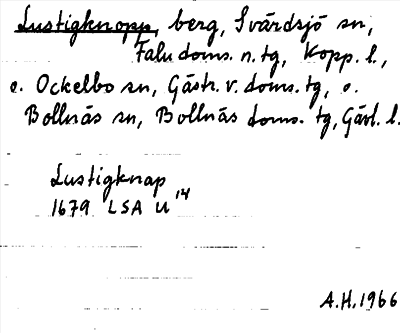 Lustigknopp, berg, Svärdsjö sn,
Falu doms. n. tg, Kopp. l.,
o. Ockelbo sn, Gästr. v. doms. tg, o.
Bollnäs sn, Bollnäs doms. tg, Gävl. l.
Lustigknap
1679 LSA U 14
A.H. 1966